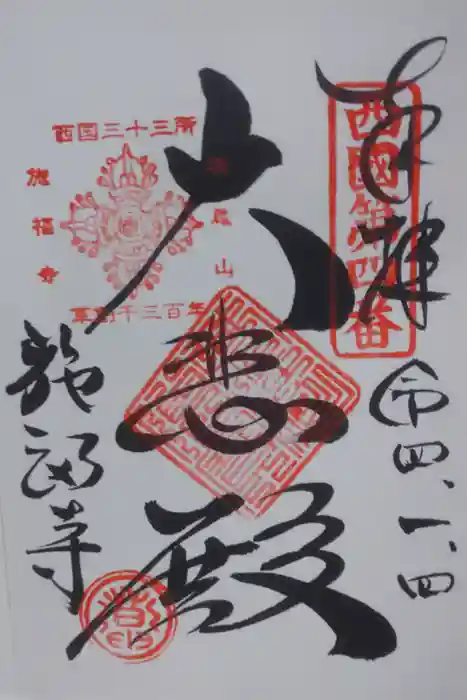 奉拝
令四、一、四
西國第四番
大悲殿
施福寺
西国三十三所
草創千三百年
施福寺
槇尾山